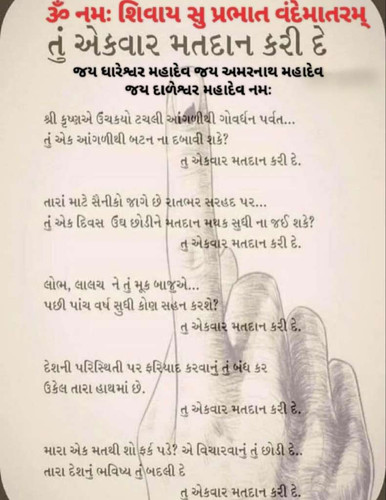 ૐ નમઃ શિવાય સુ પ્રભાત વંદેમાતરમ્
તું એકવાર મતદાન કરી દે
જય ધારેશ્વર મહાદેવ જય અમરનાથ મહાદેવ
જય દાળેશ્વર મહાદેવ નમઃ
શ્રી કૃષ્ણએ ઉચકયો ટચલી આંગળીથી ગોવર્ધન પર્વત...
તું એક આંગળીથી બટન ના દબાવી શકે?
તુ એકવાર મતદાન કરી દે.
તારાં માટે સૈનીકો જાગે છે રાતભર સરહદ પર...
તું એક દિવસ ઉઘ છોડીને મતદાન મથક સુધી ના જઈ શકે?
તુ એકવાર મતદાન કરી દે.
લોભ, લાલચ ને તું મૂક બાજૂએ...
પછી પાંચ વર્ષ સુધી કોણ સહન કરશે?
તુ એકવાર મતદાન કરી દે.
દેશની પરિસ્થિતી પર ફરિયાદ કરવાનું તું બંધ કર
ઉકેલ તારા હાથમાં છે.
તુ એકવાર મતદાન કરી દે.
મારા એક મતથી શો ફર્ક પડે? એ વિચારવાનું તું છોડી દે..
તારા દેશનું ભવિષ્ય તું બદલી દે
તુ એકવાર મતદાન કરી દે.